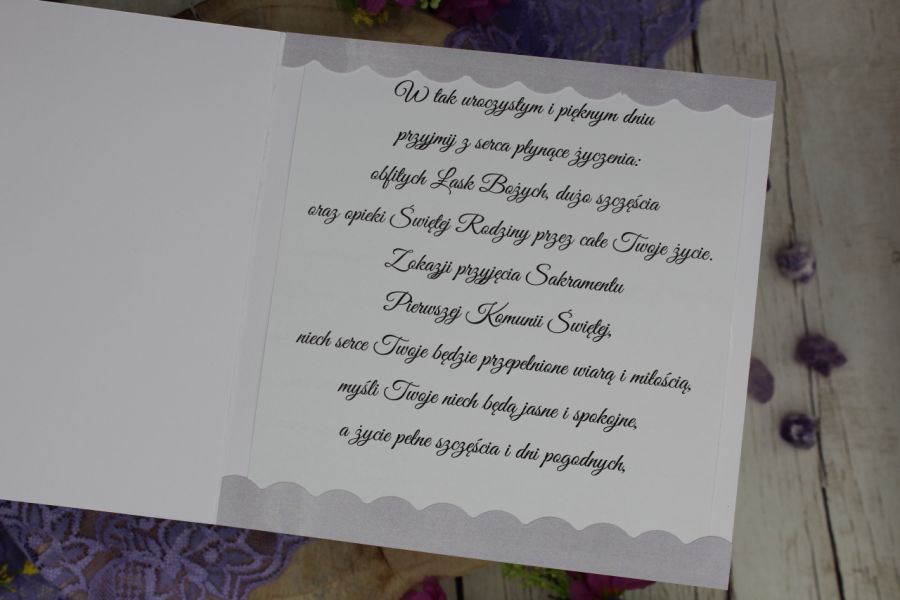 W tak uroczystym i pięknym dniu
przyjmij z serca płynące życzenia:
obfitych Łask Bożych, dużo szczęścia
oraz opieki Świętej Rodziny przez całe Twoje życie.
Zokazji przyjęcia Sakramentu
Pierwszej Komunii Świętej,
niech serce Twoje będzie przepełnione wiarą i miłością,
myśli Twoje niech będą jasne i spokojne,
a życie pełne szczęścia i dni pogodnych,